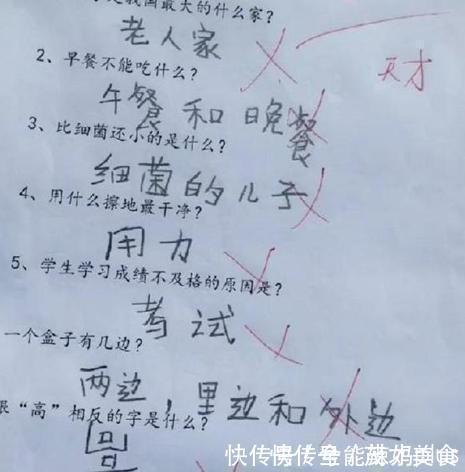 是我国最大的什么家?
老人家
天才
2、早餐不能吃什么?
午餐和晚餐
3、比细菌还小的是什么?
细菌的儿子
4、用什么擦地最干净?
用力
5、学生学习成绩不及格的原因是?
考试
一个盒子有几边?
两边,里边和外边
跟“高”相反的字是什么?
快传